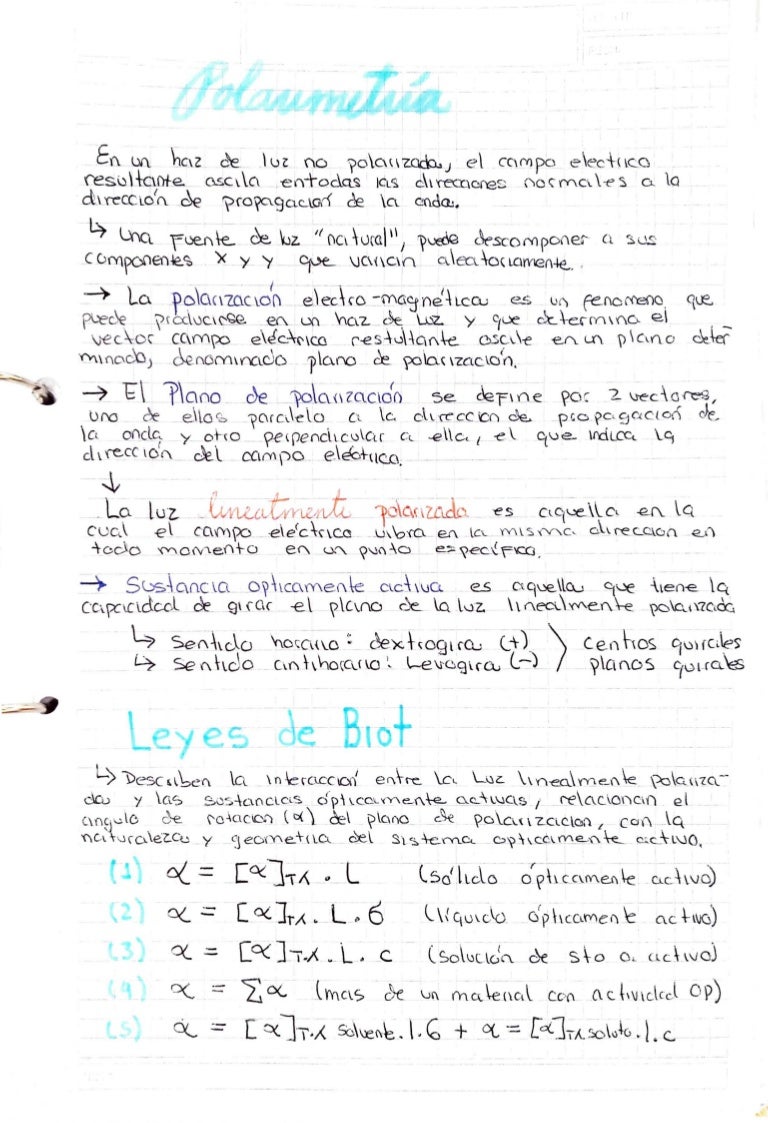 Polarimetría
En un haz de luz no polarizada, el campo electrico
resultante oscila entodas las direcciones normales a la
dirección de propagación de la onda.
↳ Una Fuente de luz "natural", puede descomponer a sus
componentes x y y que varian aleatoriamente.
→ La polarización electro-magnética es un fenomeno que
puede producirse en un haz de luz y que determina el
vector campo eléctrico restultante oscile en un plano deter
minado, denominado plano de polarización.
→ El Plano de polarización se define por 2 vectores,
uno de ellos paralelo a la dirección de propagación de
la onda y otro perpendicular a ella, el que indica la
dirección del campo eléctrico.
↓
La luz linealmente polarizada es aquella en la
cual el campo eléctrico vibra en la misma dirección en
todo momento en un punto específico.
→ Sustancia opticamente activa es aquella que tiene la
capacidad de girar el plano de la luz linealmente polarizada
↳ Sentido horario: dextrogira (+) ⟩ centros quirales
↳ Sentido antihorario: Levogira (-) ⟩ planos quirales
Leyes de Biot
↳ Describen la interacción entre la Luz linealmente polariza-
da y las sustancias ópticamente activas, relacionan el
angulo de rotacion (α) del plano de polarización, con la
naturaleza y geometria del sistema opticamente activo.
(1) α = [α]Tλ . L (sólido ópticamente activo)
(2) α = [α]Tλ . L . δ (líquido ópticamente activo)
(3) α = [α]T.λ . L . c (solución de sto o. activo)
(4) α = Σα (mas de un material con actividad OP)
(5) α = [α]T.λ solvente . l . δ + α = [α]Tλ soluto . l . c